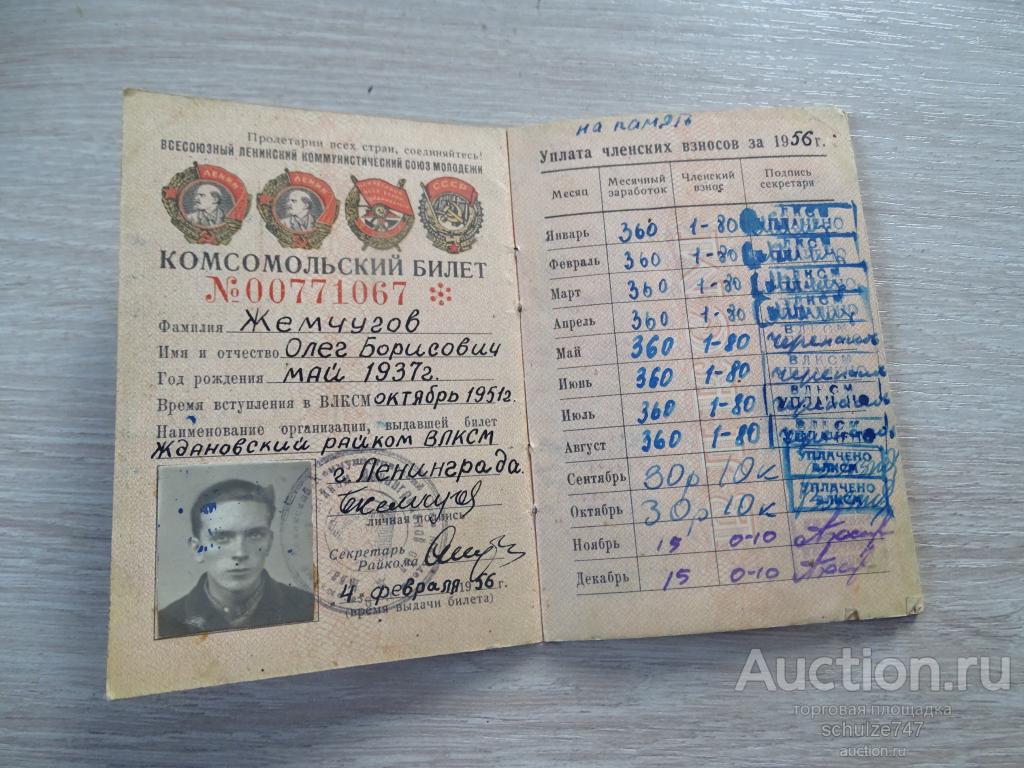 Пролетарии всех стран, соединяйтесь!
ВСЕСОЮЗНЫЙ ЛЕНИНСКИЙ КОММУНИСТИЧЕСКИЙ СОЮЗ МОЛОДЕЖИ
ЛЕНИН ЛЕНИН СССР
КОМСОМОЛЬСКИЙ БИЛЕТ
№ 00771067
Фамилия Жемчугов
Имя и отчество Олег Борисович
Год рождения май 1937г.
Время вступления в ВЛКСМ октябрь 1951г.
Наименование организации, выдавшей билет
Ждановский райком ВЛКСМ
г. Ленинграда.
личная подпись
Секретарь
Райкома
4 февраля 1956 г.
(время выдачи билета)
на память
Уплата членских взносов за 1956 г.
Месяц Месячный заработок Членский взнос Подпись секретаря
Январь 360 1-80 ВЛКСМ УПЛАЧЕНО
Февраль 360 1-80
Март 360 1-80 ВЛКСМ
Апрель 360 1-80
Май 360 1-80 ВЛКСМ
Июнь 360 1-80 ВЛКСМ
Июль 360 1-80 ВЛКСМ
Август 360 1-80 ВЛКСМ
Сентябрь 30р 10к УПЛАЧЕНО ВЛКСМ
Октябрь 30р 10к УПЛАЧЕНО ВЛКСМ
Ноябрь 15 0-10
Декабрь 15 0-10
Auction.ru
торговая площадка
schulze747
auction.ru